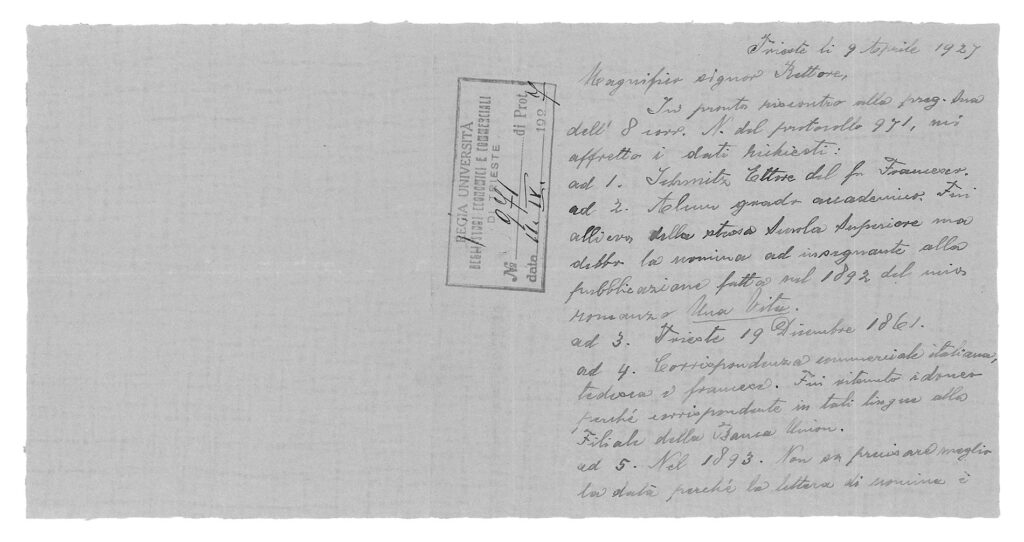 REGIA UNIVERSITÀ
DEGLI STUDI ECONOMICI E COMMERCIALI
DI TRIESTE
№ 971 di Prot.
data 11. IV. 1927
Trieste li 9 Aprile 1927
Magnifico signor Rettore,
In pronto riscontro alla preg. Sua
dell' 8 corr. N. del protocollo 971, mi
affretto i dati richiesti:
ad 1. Schmitz Ettore del fu Francesco.
ad 2. Alcun grado accademico. Fui
allievo della stessa Scuola Superiore ma
debbo la nomina ad insegnante alla
pubblicazione fatta nel 1892 del mio
romanzo Una Vita.
ad 3. Trieste 19 Dicembre 1861.
ad 4. Corrispondenza commerciale italiana,
tedesca e francese. Fui ritenuto idoneo
perché corrispondente in tali lingue alla
Filiale della Banca Union.
ad 5. Nel 1893. Non so precisare meglio
la data perché la lettera di nomina è